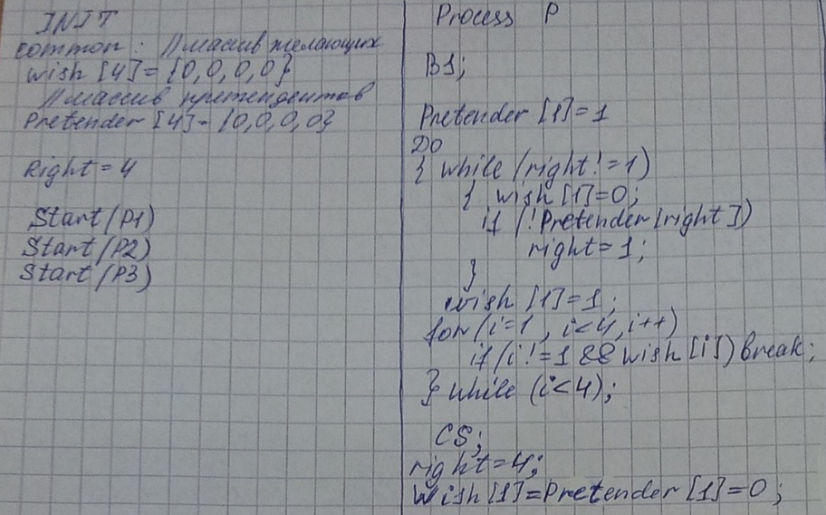 INIT
common: //массив желающих
wish [4]= {0,0,0,0}
//массив претендентов
Pretender [4]= {0,0,0,0}
Right = 4
Start(P1)
Start(P2)
Start(P3)
Process P
B1;
Pretender [1]=1
Do
{ while (right!=1)
{ wish [1]=0;
if (!Pretender[right])
right=1;
}
wish [1]=1;
for (i=1, i<4, i++)
if (i!=1 && wish [i]) break;
} while (i<4);
CS;
right=4;
Wish [1]=Pretender [1]=0;